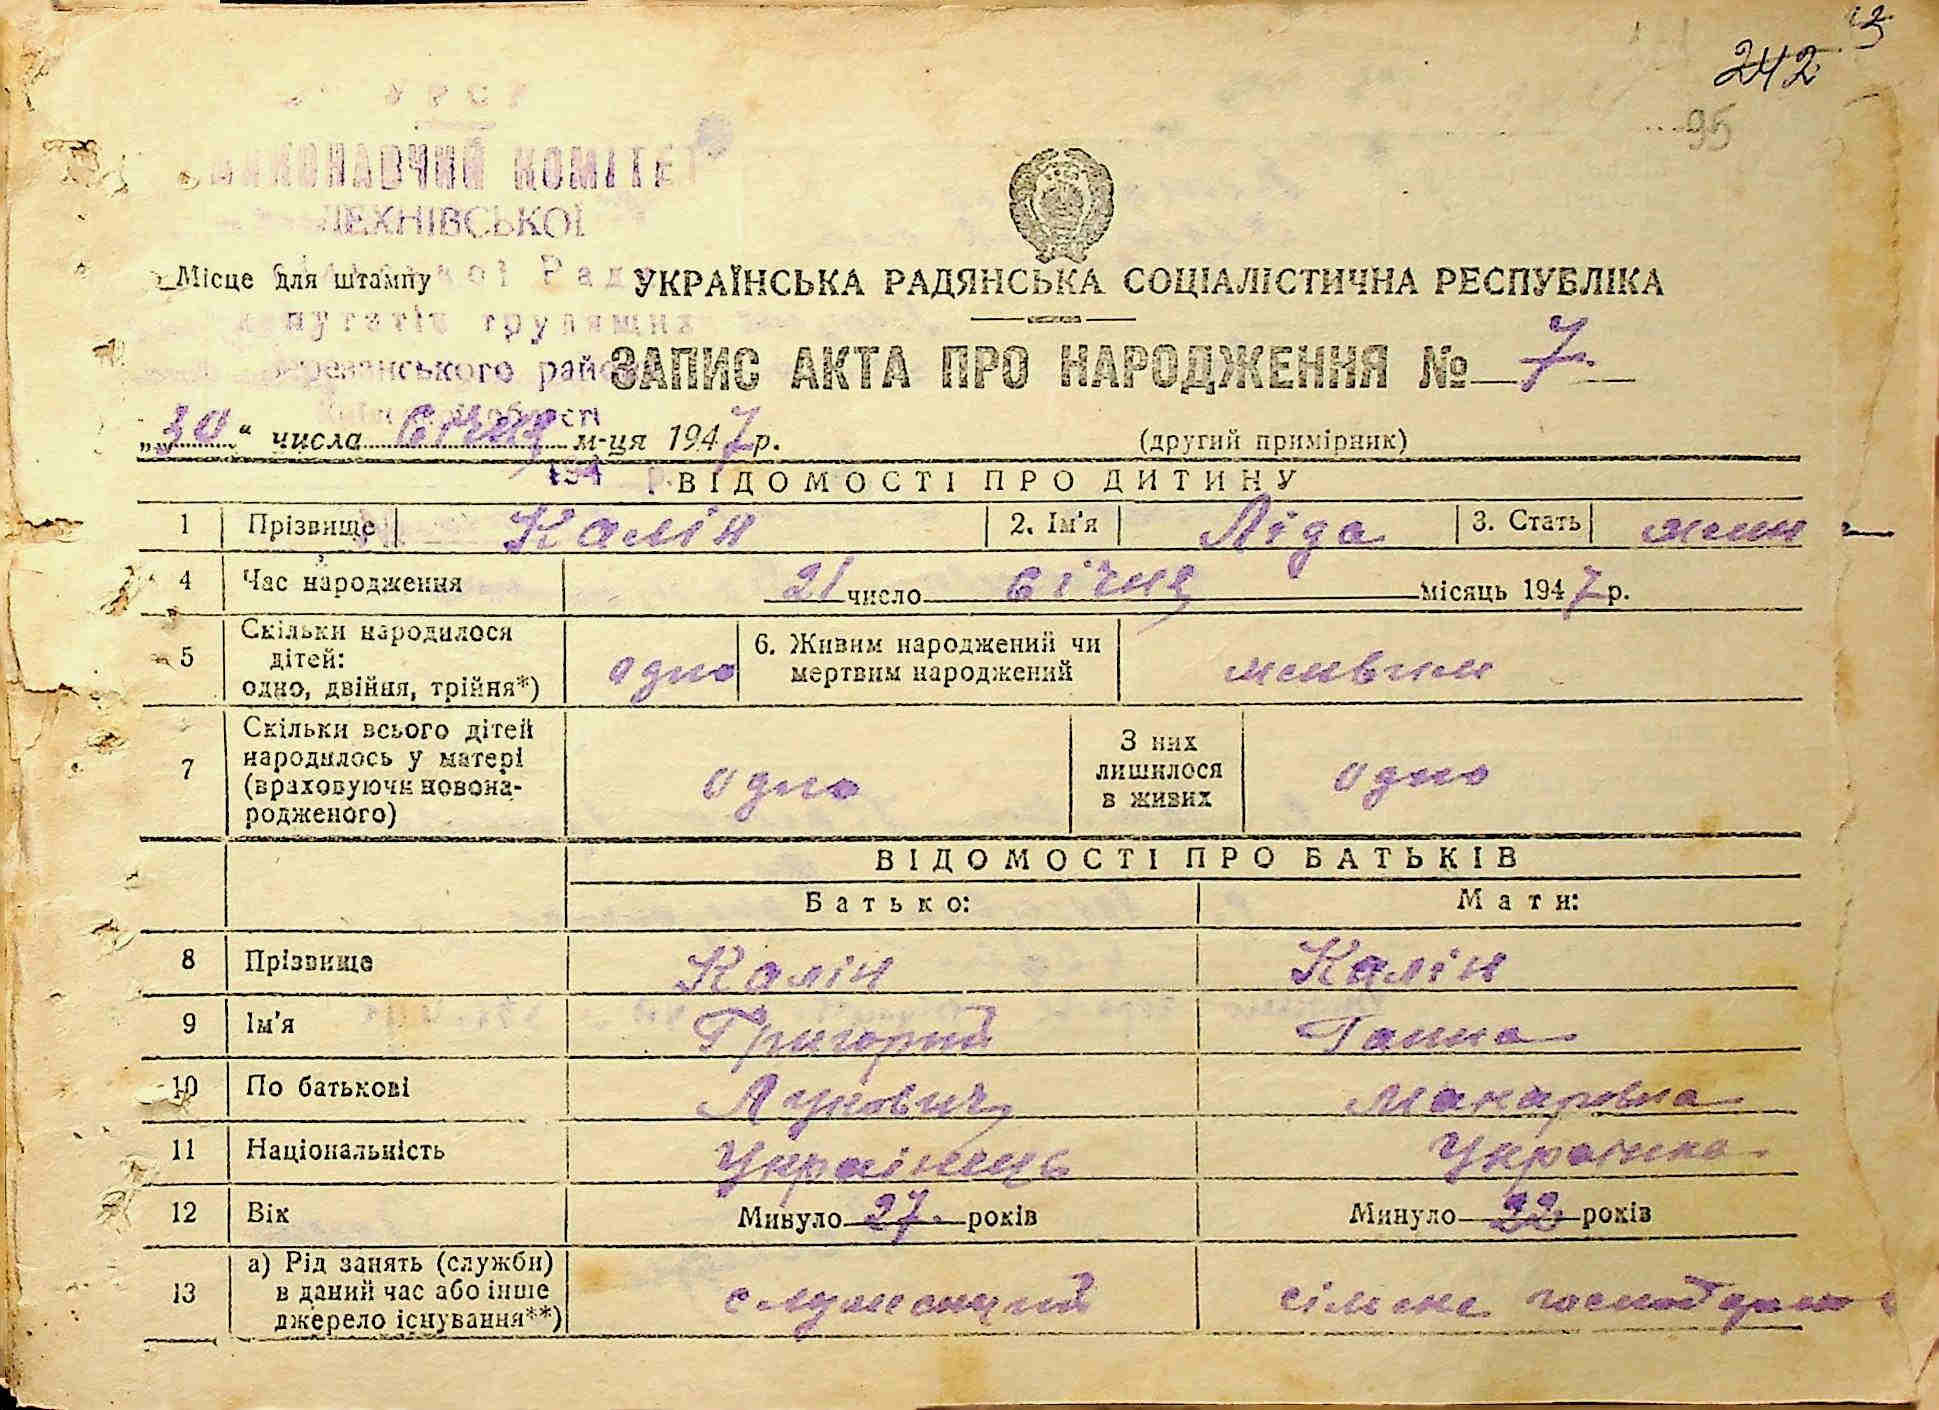 242
95
УРСР
ВИКОНАВЧИЙ КОМІТЕТ
ЛЕХНІВСЬКОЇ
Місце для штампу
Ради
УКРАЇНСЬКА РАДЯНСЬКА СОЦІАЛІСТИЧНА РЕСПУБЛІКА
депутатів трудящих
ЗАПИС АКТА ПРО НАРОДЖЕННЯ № 7
Березанського району
області
„30“ числа січня м-ця 1947 р.
(другий примірник)
194 р.
ВІДОМОСТІ ПРО ДИТИНУ
1 Прізвище Калін 2. Ім'я Ліда 3. Стать жин
4 Час народження 21 число січня місяць 1947 р.
5 Скільки народилося дітей: одно, двійня, трійня*) одно 6. Живим народжений чи мертвим народжений живим
7 Скільки всього дітей народилось у матері (враховуючи новонародженого) одно З них лишилося в живих одно
ВІДОМОСТІ ПРО БАТЬКІВ
Батько: Мати:
8 Прізвище Калін Калін
9 Ім'я Григорий Ганна
10 По батькові Лукович Макаровна
11 Національність Українець Українка
12 Вік Минуло 27 років Минуло 22 років
13 а) Рід занять (служби) в даний час або інше джерело існування**) служащий сільське